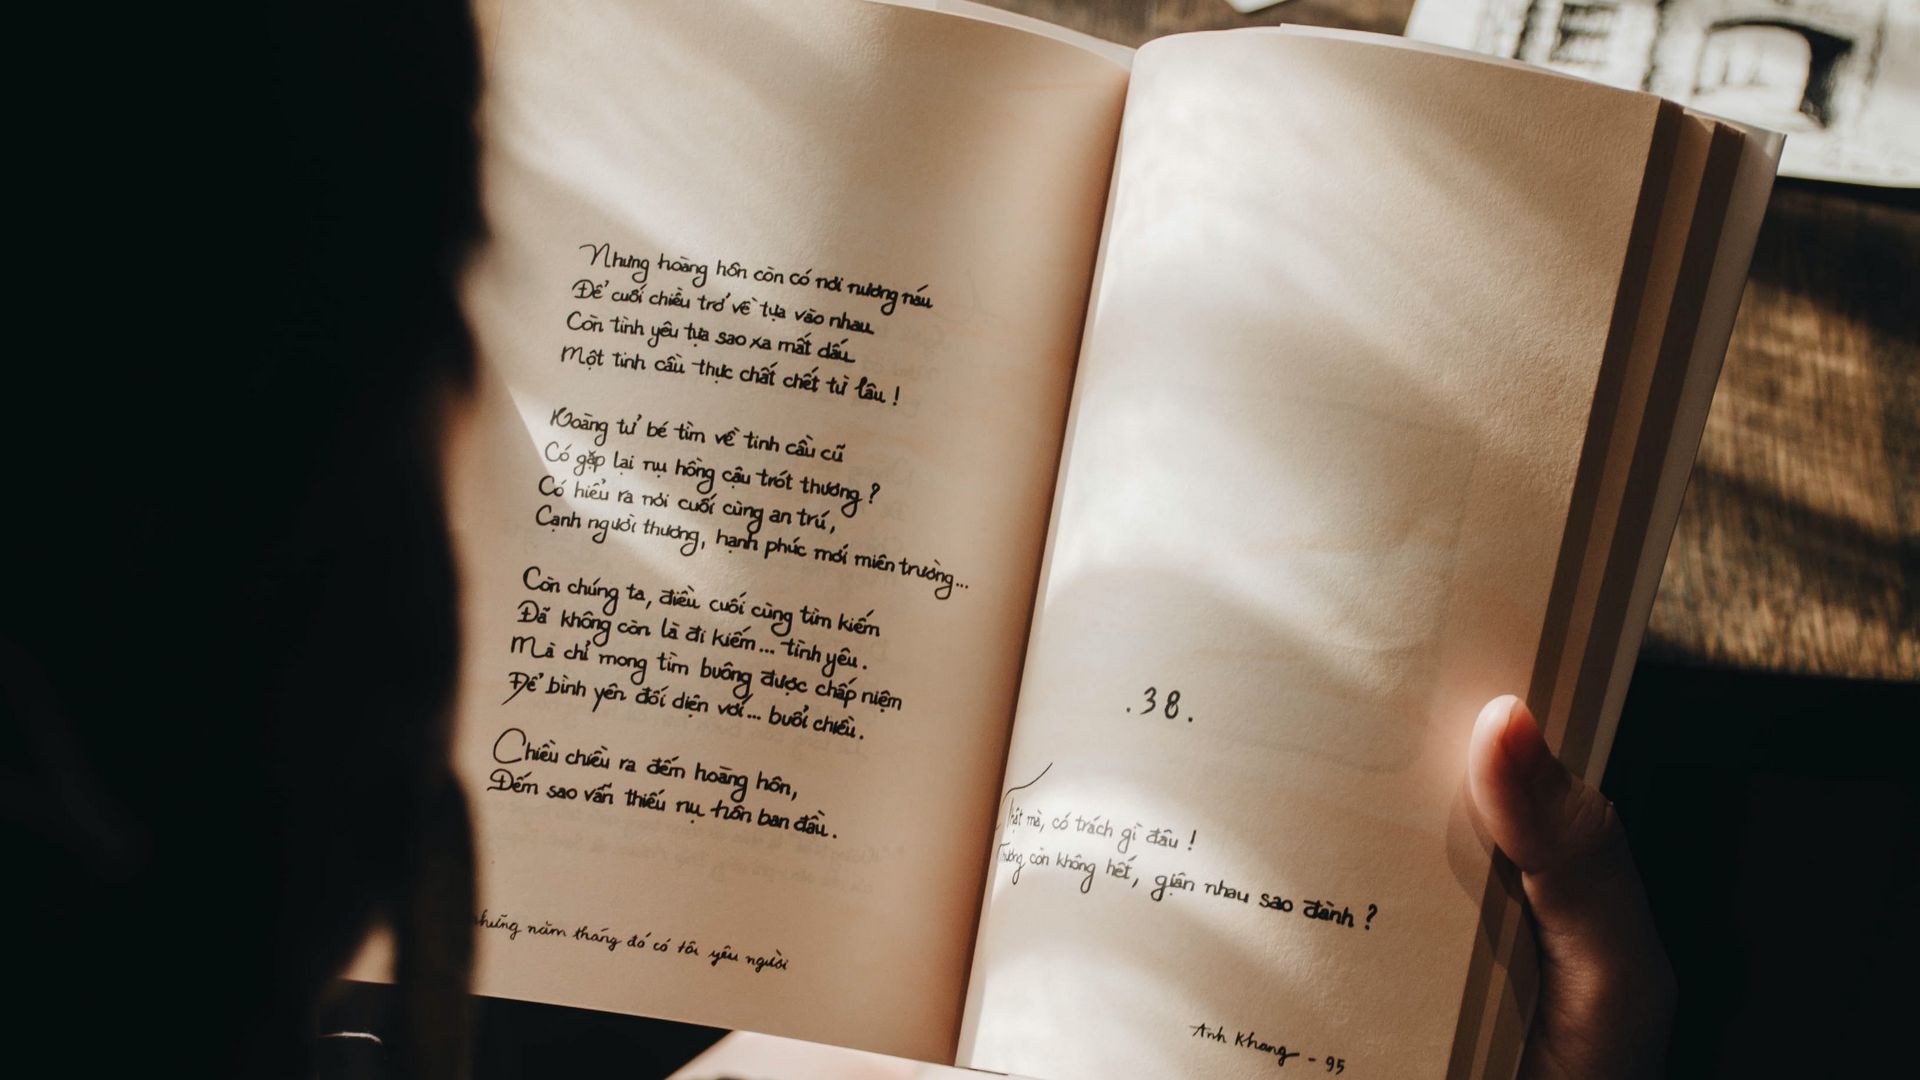 Nhưng hoàng hôn còn có nơi nương náu
Để cuối chiều trở về tựa vào nhau
Còn tình yêu tựa sao xa mất dấu
Một tinh cầu thực chất chết từ lâu !
Hoàng tử bé tìm về tinh cầu cũ
Có gặp lại nụ hồng cậu trót thương ?
Có hiểu ra nơi cuối cùng an trú,
Cạnh người thương, hạnh phúc mới miên trường...
Còn chúng ta, điều cuối cùng tìm kiếm
Đã không còn là đi kiếm... tình yêu.
Mà chỉ mong tìm buông được chấp niệm
Để bình yên đối diện với... buổi chiều.
Chiều chiều ra đếm hoàng hôn,
Đếm sao vẫn thiếu nụ hôn ban đầu.
những năm tháng đó có tôi yêu người
.38.
Thật mà, có trách gì đâu !
Thương còn không hết, giận nhau sao đành ?
Anh Khang - 95